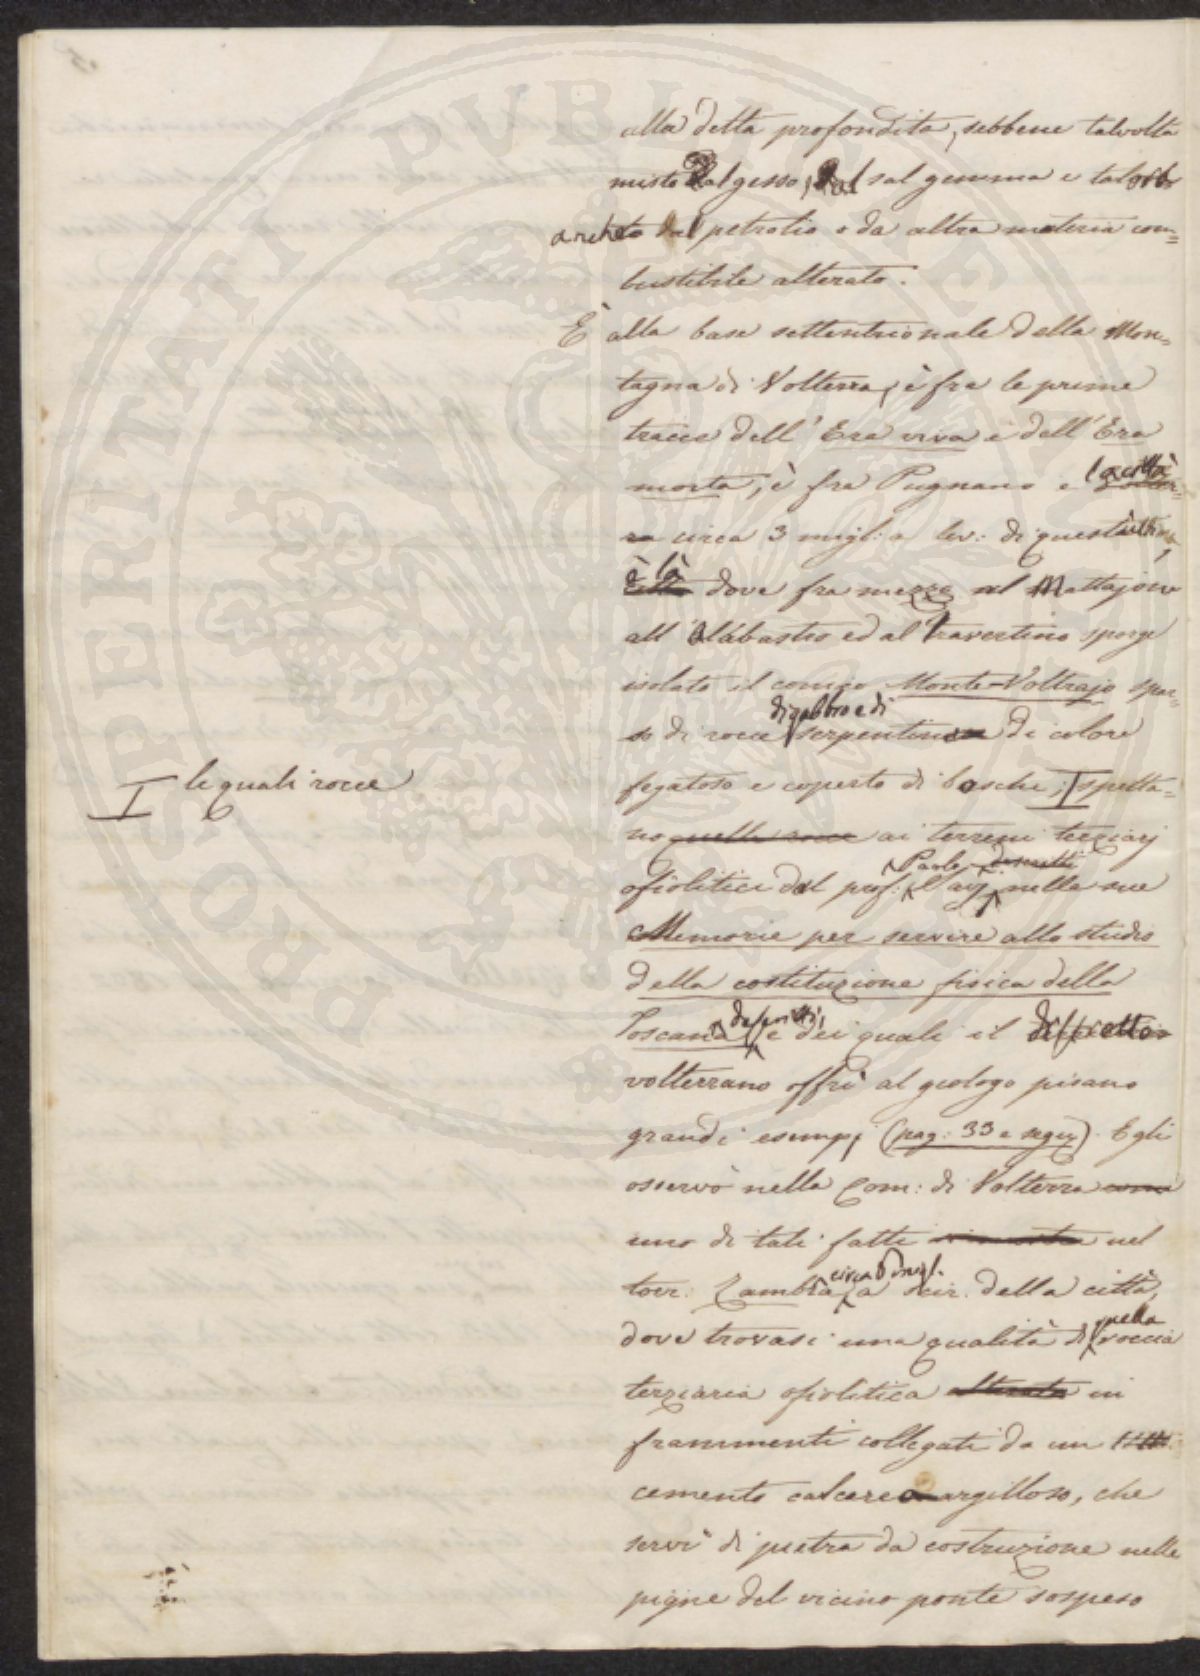 alla detta profondità, sebbene talvolta
misto al gesso, al sal gemma e talor
anche dal petrolio o da altra materia com=
bustibile alterato.
È alla base settentrionale della Mon=
tagna di Volterra, è fra le prime
tracce dell' Era viva e dell' Era
morta, è fra Pugnano e la città
circa 3 migl: a lev: di quest'ultima,
è là dove fra mezzo al Mattajone
all'Alabastro ed al Travertino sporge
isolato il conico Monte-Voltrajo spar=
so di rocce di gabbro e di serpentino di colore
fegatoso e coperto di boschi; I spetta=
I le quali rocce
no quelle rocce ai terreni terziarj
ofiolitici dal prof. Paolo Savj descritti nelle sue
Memorie per servire allo studio
della costituzione fisica della
Toscana descritti, e dei quali il distretto
volterrano offrì al geologo pisano
grandi esempj (pag: 33 e segg). Egli
osservò nella Com: di Volterra come
uno di tali fatti nel
torr: Zambra circa 6 migl. a scir. della città,
dove trovasi una qualità di quella roccia
terziaria ofiolitica alterata in
frammenti collegati da un
cemento calcareo argilloso, che
servì di pietra da costruzione nelle
pigne del vicino ponte sospeso